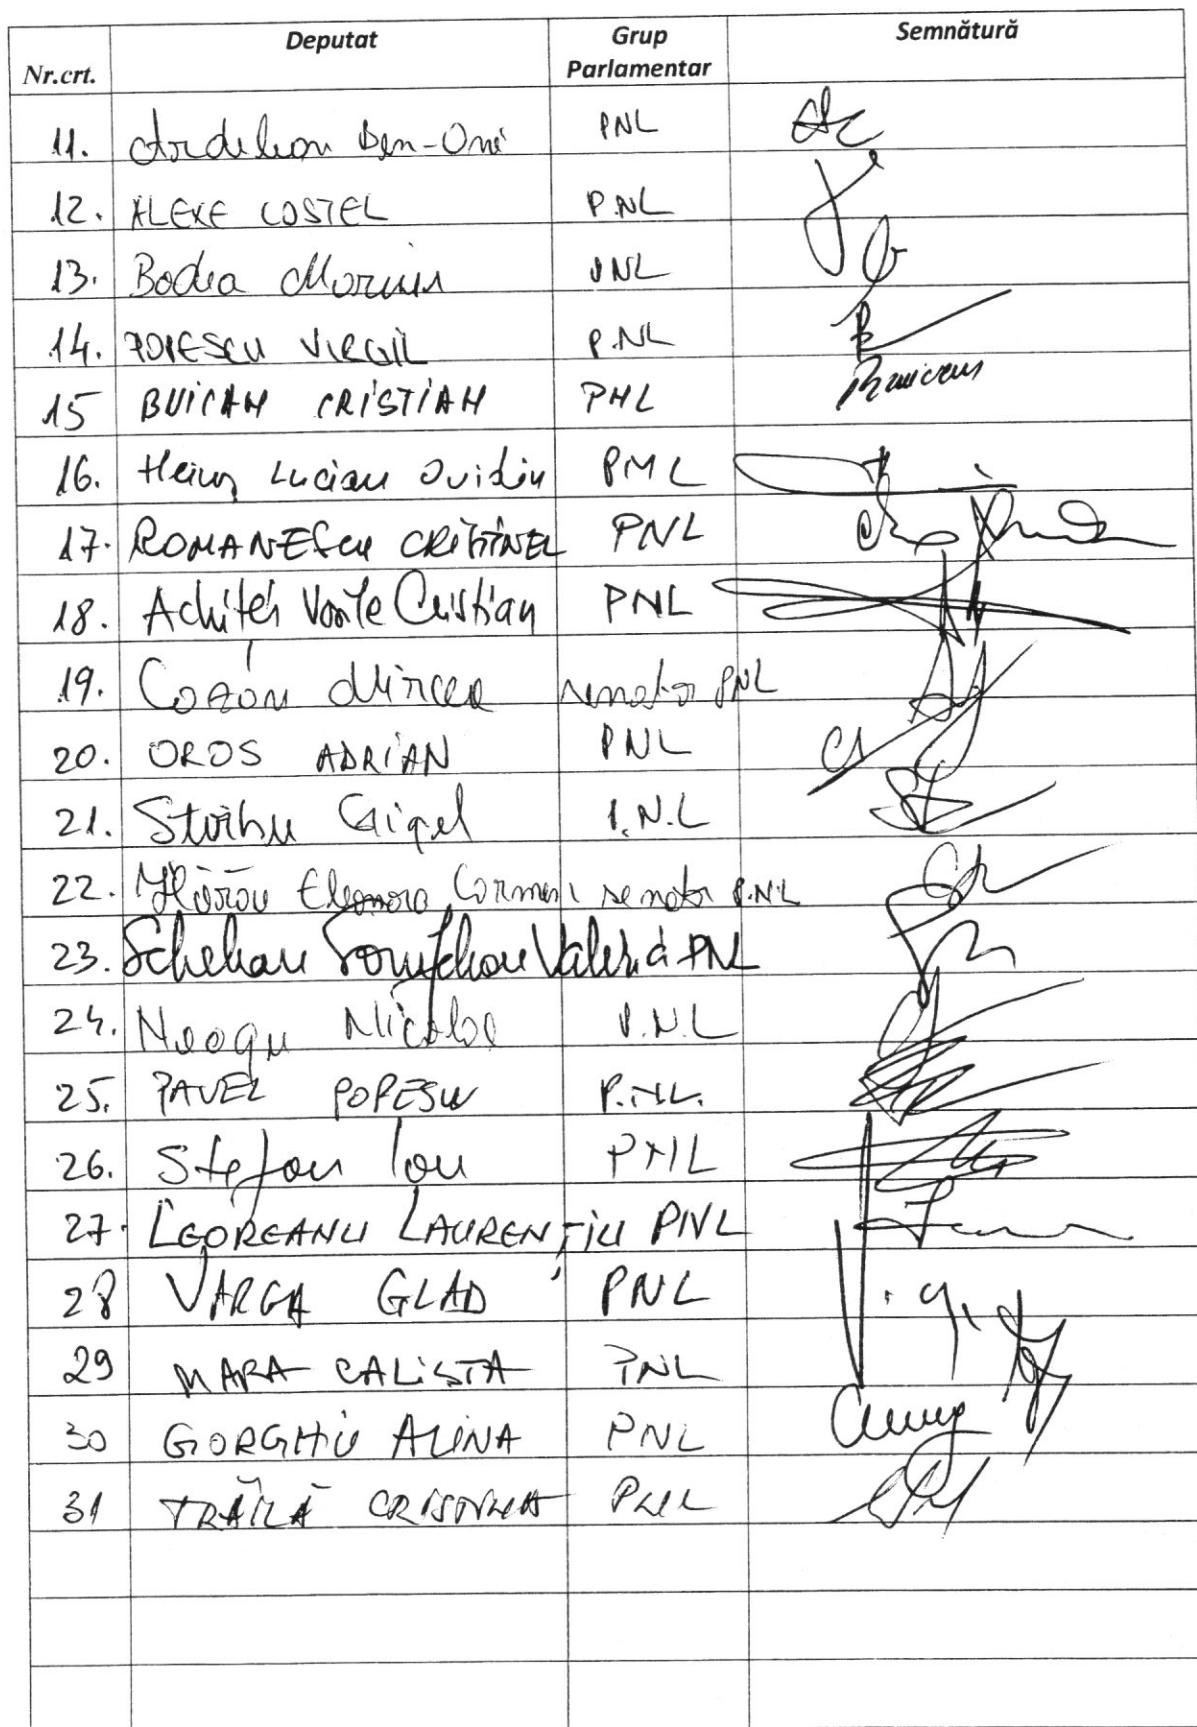 Nr.crt. Deputat Grup Parlamentar Semnătură
11. Ardelean Ben-Oni PNL
12. ALEXE COSTEL P.NL
13. Bodea Marius PNL
14. POPESCU VIRGIL P.NL
15 BUICAN CRISTIAN PNL
16. Heiuș Lucian Ovidiu PNL
17. ROMANESCU CRISTINEL PNL
18. Achiței Vasile Cristian PNL
19. Cazan Mircea senator PNL
20. OROS ADRIAN PNL
21. Știrbu Gigel P.N.L
22. Elenora Carmen senator P.NL
23. Schelean Valeria PNL
24. Neagu Nicolae P.N.L
25. PAVEL POPESCU P.NL.
26. Stefan Ion PNL
27. LEOREANU LAURENȚIU PNL
28 VARGA GLAD PNL
29 MARA CALISTA PNL
30 GORGHIU ALINA PNL
31 TRĂILĂ CRISTINA PNL